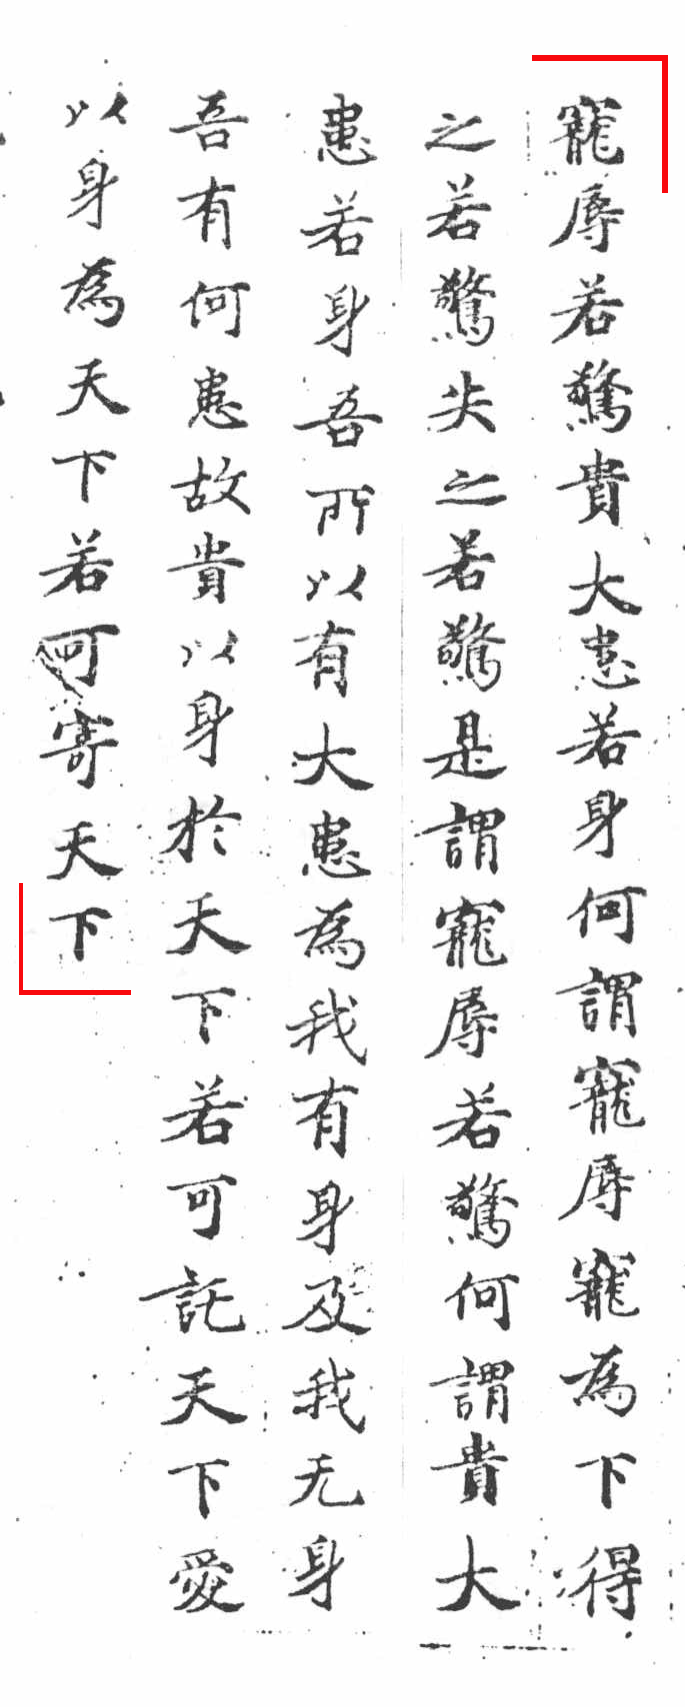 寵辱若驚貴大患若身何謂寵辱寵為下得
之若驚失之若驚是謂寵辱若驚何謂貴大
患若身吾所以有大患為我有身及我无身
吾有何患故貴以身於天下若可託天下愛
以身為天下若可寄天下